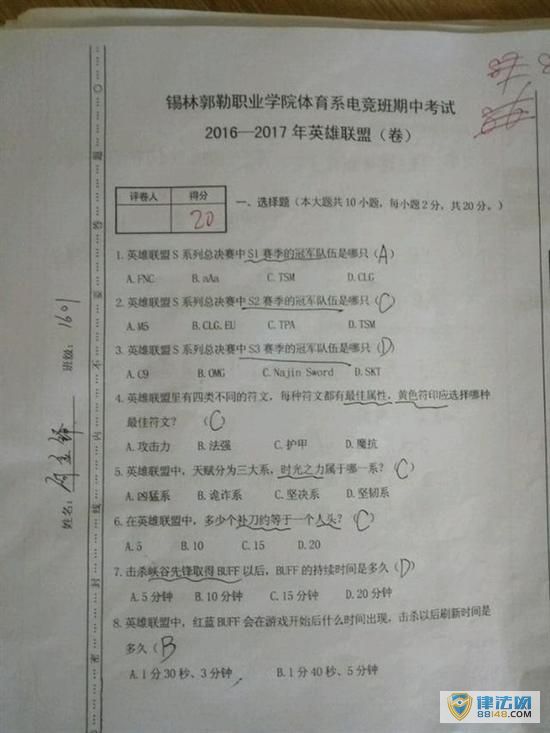 锡林郭勒职业学院体育系电竞班期中考试
2016—2017年英雄联盟（卷）
评卷人 得分
20
一、选择题（本大题共10小题，每小题2分，共20分。）
1. 英雄联盟 S 系列总决赛中 S1 赛季的冠军队伍是哪只（A）
A. FNC B. aAa C. TSM D. CLG
2. 英雄联盟 S 系列总决赛中 S2 赛季的冠军队伍是哪只（C）
A. M5 B. CLG. EU C. TPA D. TSM
3. 英雄联盟 S 系列总决赛中 S3 赛季的冠军队伍是哪只（D）
A. C9 B. OMG C. Najin Sword D. SKT
4. 英雄联盟里有四类不同的符文，每种符文都有最佳属性，黄色符印应选择哪种
最佳符文？ （C）
A. 攻击力 B. 法强 C. 护甲 D. 魔抗
5. 英雄联盟中，天赋分为三大系，时光之力属于哪一系？（C）
A. 凶猛系 B. 诡诈系 C. 坚决系 D. 坚韧系
6. 在英雄联盟中，多少个补刀约等于一个人头？（C）
A. 5 B. 10 C. 15 D. 20
7. 击杀峡谷先锋取得 BUFF 以后，BUFF 的持续时间是多久（D）
A. 5 分钟 B. 10 分钟 C. 15 分钟 D. 20 分钟
8. 英雄联盟中，红蓝 BUFF 会在游戏开始后什么时间出现，击杀以后刷新时间是
多久（B
A. 1 分 30 秒、3 分钟 B. 1 分 40 秒、5 分钟
班级: 1601
姓名:
线 内 不 答 题
密 封
律法网
88148.com